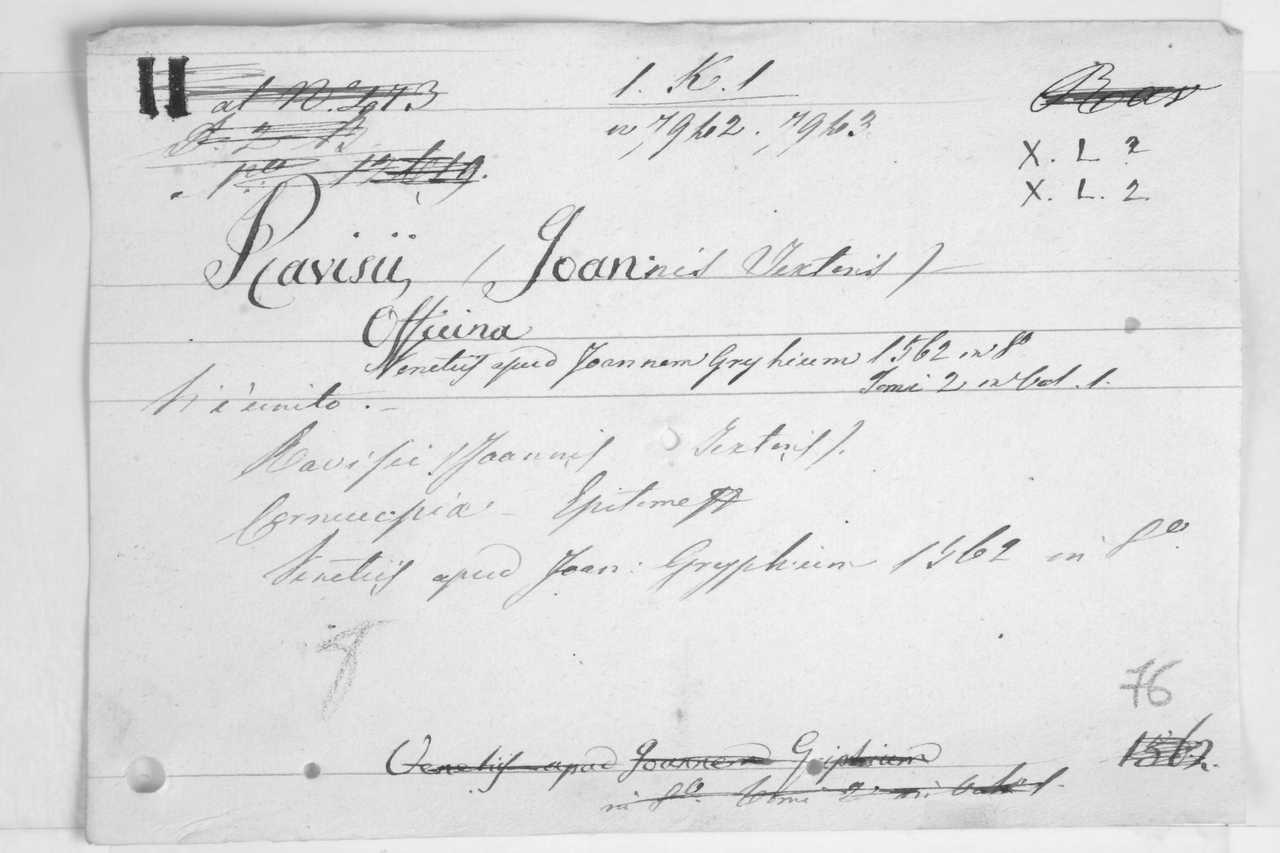 II
al N. 2973
1. K. 1
Rav
A. 2
n 7962. 7963
X. L. 2
X. L. 2.
Ravisii, (Joannis Textoris)
Officina
Venetiis apud Joannem Gryphium 1562 in 8º
Tomi 2 in Vol. 1.
Vi è unito. -
Ravisii (Joannis Textoris).
Cornucopiæ - Epitome
Venetiis apud Joan: Gryphium 1562 in 8º.
76
Venetiis apud Joannem Griphium 1562.
in 8º tomi 2 in